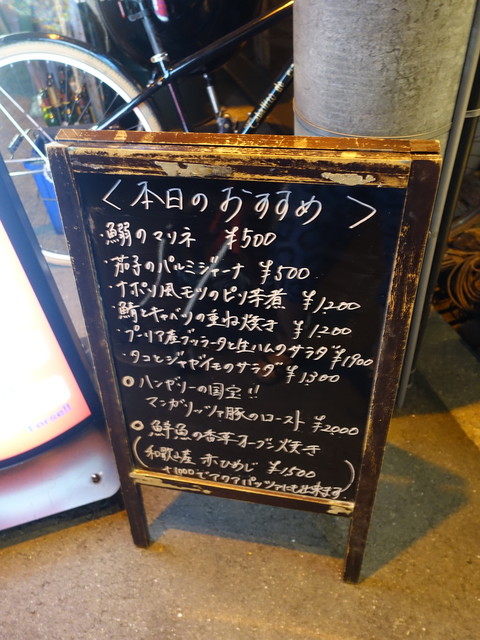 <本日のおすすめ>
鰯のマリネ ¥500
・茄子のパルミジャーナ ¥500
・ナポリ風モツのピリ辛煮 ¥1200
・鯖とキャベツの重ね焼き ¥1200
・プーリア産ブッラータと生ハムのサラダ ¥1900
・タコとジャガイモのサラダ ¥1300
◎ハンガリーの国宝!!
マンガリッツァ豚のロースト ¥2000
◎鮮魚の香草オーブン焼き
(和歌山産 赤ひめじ ¥1500
+1000でアクアパッツァにも出来ます)